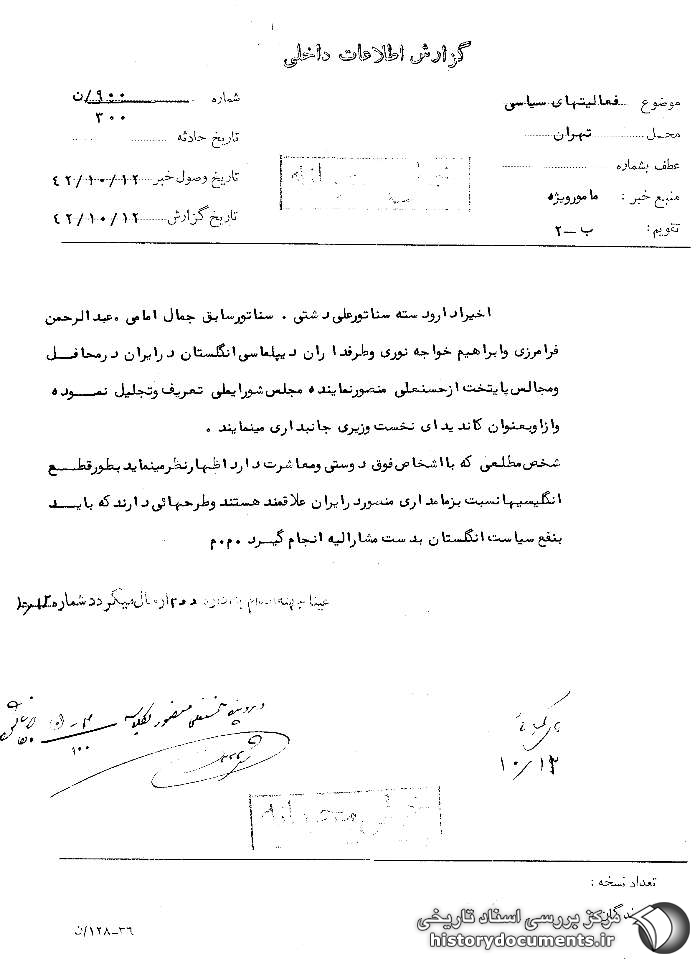 گزارش اطلاعات داخلی
موضوع فعالیتهای سیاسی
محل تهران
عطف بشماره
منبع خبر : مامورویژه
تقویم : ب ــ ۲
شماره ۹۰۰/ن
۳۰۰
تاریخ حادثه
تاریخ وصول خبر ۴۲/۱۰/۱۲
تاریخ گزارش ۴۲/۱۰/۱۲
اخیرا دارودسته سناتورعلی دشتی . سناتورسابق جمال امامی . عبدالرحمن
فرامرزی وابراهیم خواجه نوری وطرفداران دیپلماسی انگلستان درایران درمحافل
ومجالس پایتخت ازحسنعلی منصورنماینده مجلس شورایملی تعریف وتجلیل نموده
وازاوبعنوان کاندیدای نخست وزیری جانبداری مینمایند .
شخص مطلعی که بااشخاص فوق دوستی ومعاشرت دارد اظهارنظرمینماید بطورقطع
انگلیسیها نسبت بزمامداری منصوردرایران علاقمند هستند وطرحهائی دارندکه باید
بنفع سیاست انگلستان بدست مشارالیه انجام گیرد م.م.
عینا میگردد شماره
منصور
۱۰۰
۱۰/۱۳
خیلی محرمانه
تعداد نسخه :
۳۶ــ۱۲۸/ن
مرکز بررسی اسناد تاریخی
historydocuments.ir